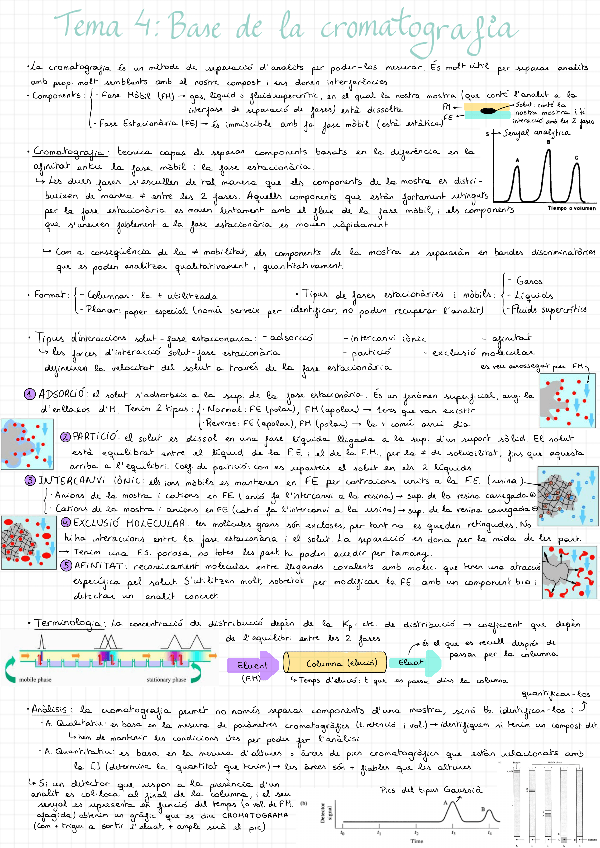 Tema 4: Base de la cromatografia
• La cromatografia és un mètode de separació d'analits per poder-los mesurar. És molt útil per separar analits
amb prop. molt semblants amb el nostre compost i ens donen interferències
• Components: - Fase Mòbil (FM) → gas, líquid o fluid supercrític, en el qual la nostra mostra (que conté l'analit a la
interfase de separació de fases) està dissolta
- Fase Estacionària (FE) → és immiscible amb la fase mòbil (està estàtica)
FM
FE
Solut: conté la
nostra mostra i té
interacció amb les 2 fases
S → Senyal analítica
A
B
C
Tiempo o volumen
• Cromatografia: tècnica capaç de separar components basats en la diferència en la
afinitat entre la fase mòbil i la fase estacionària.
↳ Les dues fases s'escullen de tal manera que els components de la mostra es distri-
bueixen de manera ≠ entre les 2 fases. Aquells components que estàn fortament retinguts
per la fase estacionària es mouen lentament amb el fluxe de la fase mòbil, i els components
que s'uneixen feblement a la fase estacionària es mouen ràpidament
↳ Com a conseqüència de la ≠ mobilitat, els components de la mostra es separaràn en bandes discriminatòries
que es poden analitzar qualitativament i quantitativament.
• Format: - Columna: la + utilitzada
- Planar: paper especial (només serveix per identificar, no poden recuperar l'analit)
• Tipus de fases estacionàries i mòbils: - Gasos
- Líquids
- Fluids supercrítics
• Tipus d'interaccions solut-fase estacionària: - adsorció - interconvi iònic - afinitat
- partició - exclusió molecular
↳ les forces d'interacció solut-fase estacionària
defineixen la velocitat del solut a través de la fase estacionària
es veu arrossegat per FM
1 ADSORCIÓ: el solut s'adsorbeix a la sup. de la fase estacionària. És un fenòmen superficial, amb la
d'enllaços d'H. Tenim 2 tipus: - Normal: FE (polar), FM (apolar) → 1eres que van existir
- Reversa: FE (apolar), FM (polar) → la + comú avui dia
2 PARTICIÓ: el solut es dissol en una fase líquida lligada a la sup. d'un suport sòlid. El solut
està equilibrat entre el líquid de la F.E. i el de la F.M., per la ≠ de solubilitat, fins que aquesta
arriba a l'equilibri. Coef. de partició: com es reparteix el solut en els 2 líquids
3 INTERCANVI IÒNIC: els ions mòbils es mantenen en FE per contraions units a la F.E. (resina)
- Anions de la mostra i cations en FE (anió fa l'intercanvi a la resina) → sup. de la resina carregada ⊕
- Cations de la mostra i anions en FE (catió fa l'intercanvi a la resina) → sup. de la resina carregada ⊖
4 EXCLUSIÓ MOLECULAR: les molècules grans són excloses, per tant no es queden retingudes. No
hi ha interaccions entre la fase estacionària i el solut. La separació es dona per la mida de les part.
→ Tenim una F.S. porosa, no totes les part. hi poden accedir per tamany.
5 AFINITAT: reconeixement molecular entre lligands covalents amb molec. que tenen una atracció
específica pel solut. S'utilitzen molt, sobretot per modificar la FE amb un component bio i
detectar un analit concret.
• Terminologia: la concentració de distribució depèn de la Kp: ctt. de distribució → coeficient que depèn
de l'equilibri entre les 2 fases
mobile phase
stationary phase
Eluent
(FM)
Columna (elució)
Eluat
→ és el que es recull després de
passar per la columna
↳ Temps d'elució: t que es passa dins la columna
quantificar-los
• Anàlisis: la cromatografia permet no només separar components d'una mostra, sinó tb. identificar-los i
- A. Qualitatiu: es basa en la mesura de paràmetres cromatogràfics (t. retenció i vol.) → identifiquem si tenim un compost det
↳ hem de mantenir les condicions ctes per poder fer l'anàlisi
- A. Quantitatiu: es basa en la mesura d'altures o àrees de pics cromatogràfics que estan relacionats amb
la [] (determina la quantitat que tenim) → les àrees són + fiables que les altures
↳ Si un detector que respon a la presència d'un
analit es col·loca al final de la columna, i el seu
senyal es representa en funció del temps (o vol. de F.M.
afegida) obtenim un gràfic que es diu CROMATOGRAMA
(com + trigui a sortir l'eluat, + ample serà el pic)
Pics del tipus Gaussià
(b)
Detector signal
A
B
t₀
t₁
t₂
t₃
t₄
Time